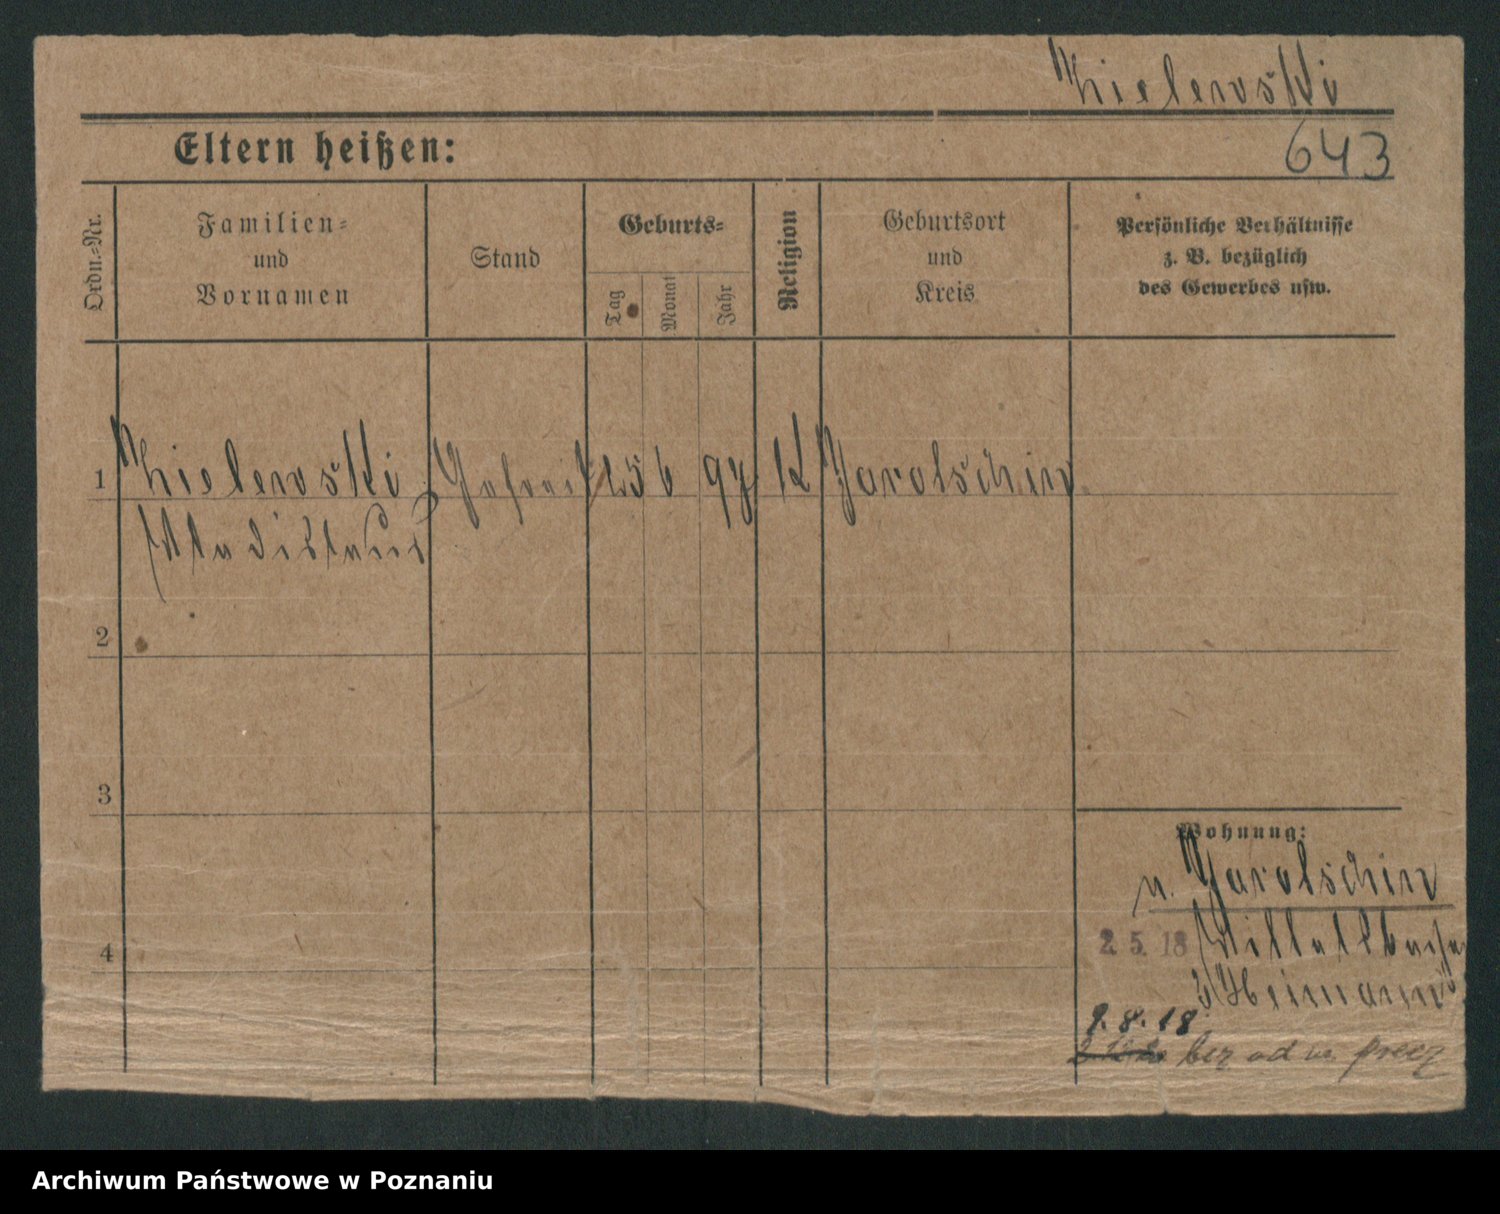 Zielewski
Eltern heißen:
643
Ordn.-Nr.
Familien-
und
Vornamen
Stand
Geburts-
Tag
Monat
Jahr
Religion
Geburtsort
und
Kreis
Persönliche Verhältnisse
z. B. bezüglich
des Gewerbes usw.
1 Zielewski 25 6 97 K Jarotschin
Wladislaus
2
3
Wohnung:
n. Jarotschin
4
2. 5. 18
9. 8. 18
bez
Archiwum Państwowe w Poznaniu